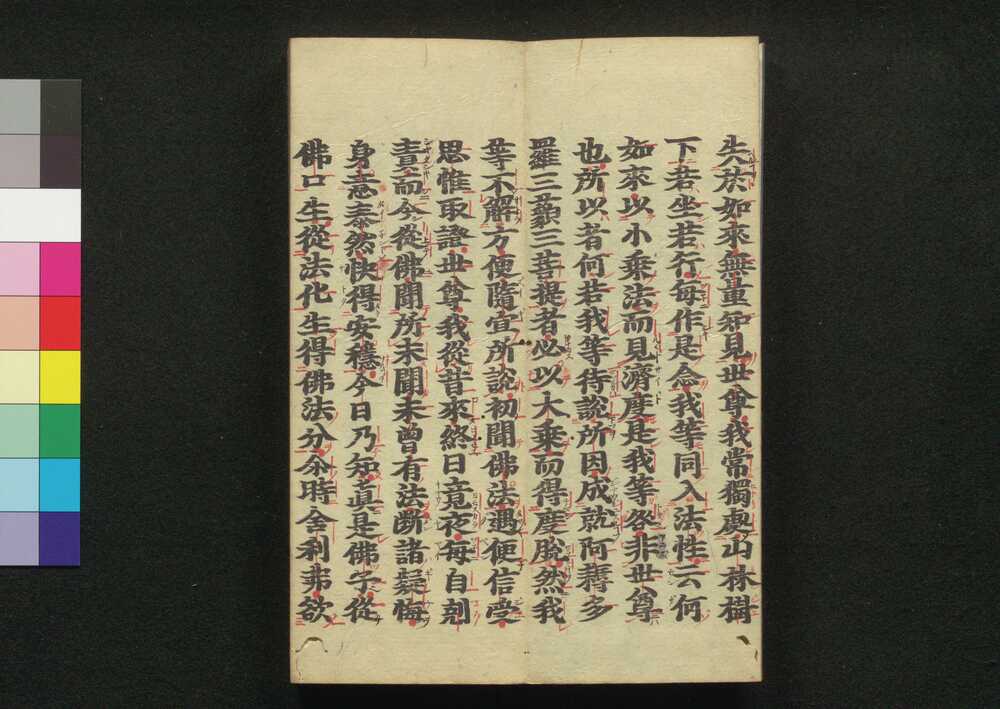 失於如來無量知見世尊我常獨處山林樹
下若坐若行每作是念我等同入法性云何
如來以小乘法而見濟度是我等咎非世尊
也所以者何若我等待說所因成就阿耨多
羅三藐三菩提者必以大乘而得度脫然我
等不解方便隨宜所說初聞佛法遇便信受
思惟取證世尊我從昔來終日竟夜每自剋
責而今從佛聞所未聞未曾有法斷諸疑悔
身意泰然快得安穩今日乃知真是佛子從
佛口生從法化生得佛法分尒時舍利弗欲